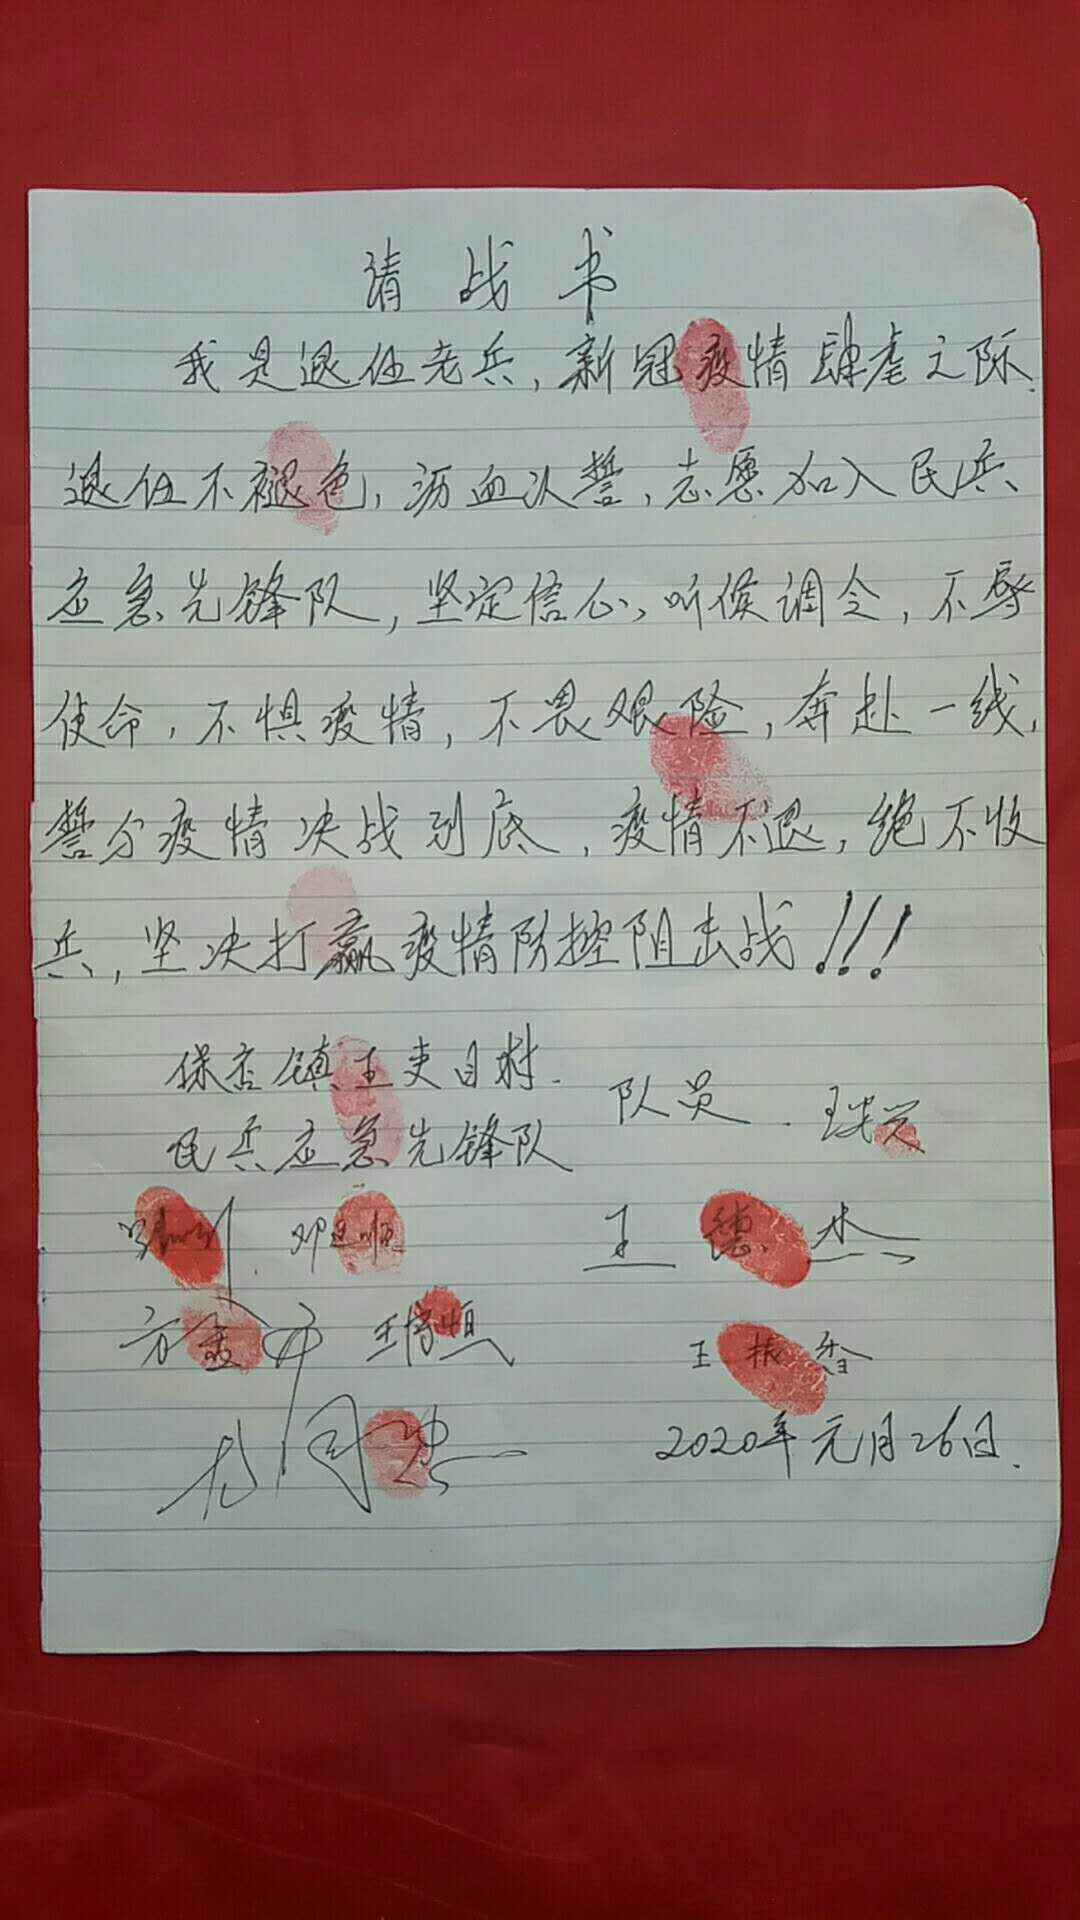 请战书
我是退伍老兵，新冠疫情肆虐之际，
退伍不褪色，沥血以誓，志愿加入民兵
应急先锋队，坚定信心，听候调令，不辱
使命，不惧疫情，不畏艰险，奔赴一线，
誓与疫情决战到底，疫情不退，绝不收
兵，坚决打赢疫情防控阻击战!!!
保店镇王吏目村.
民兵应急先锋队
队员.
邓廷顺
王德杰
王振香
2020年元月26日.